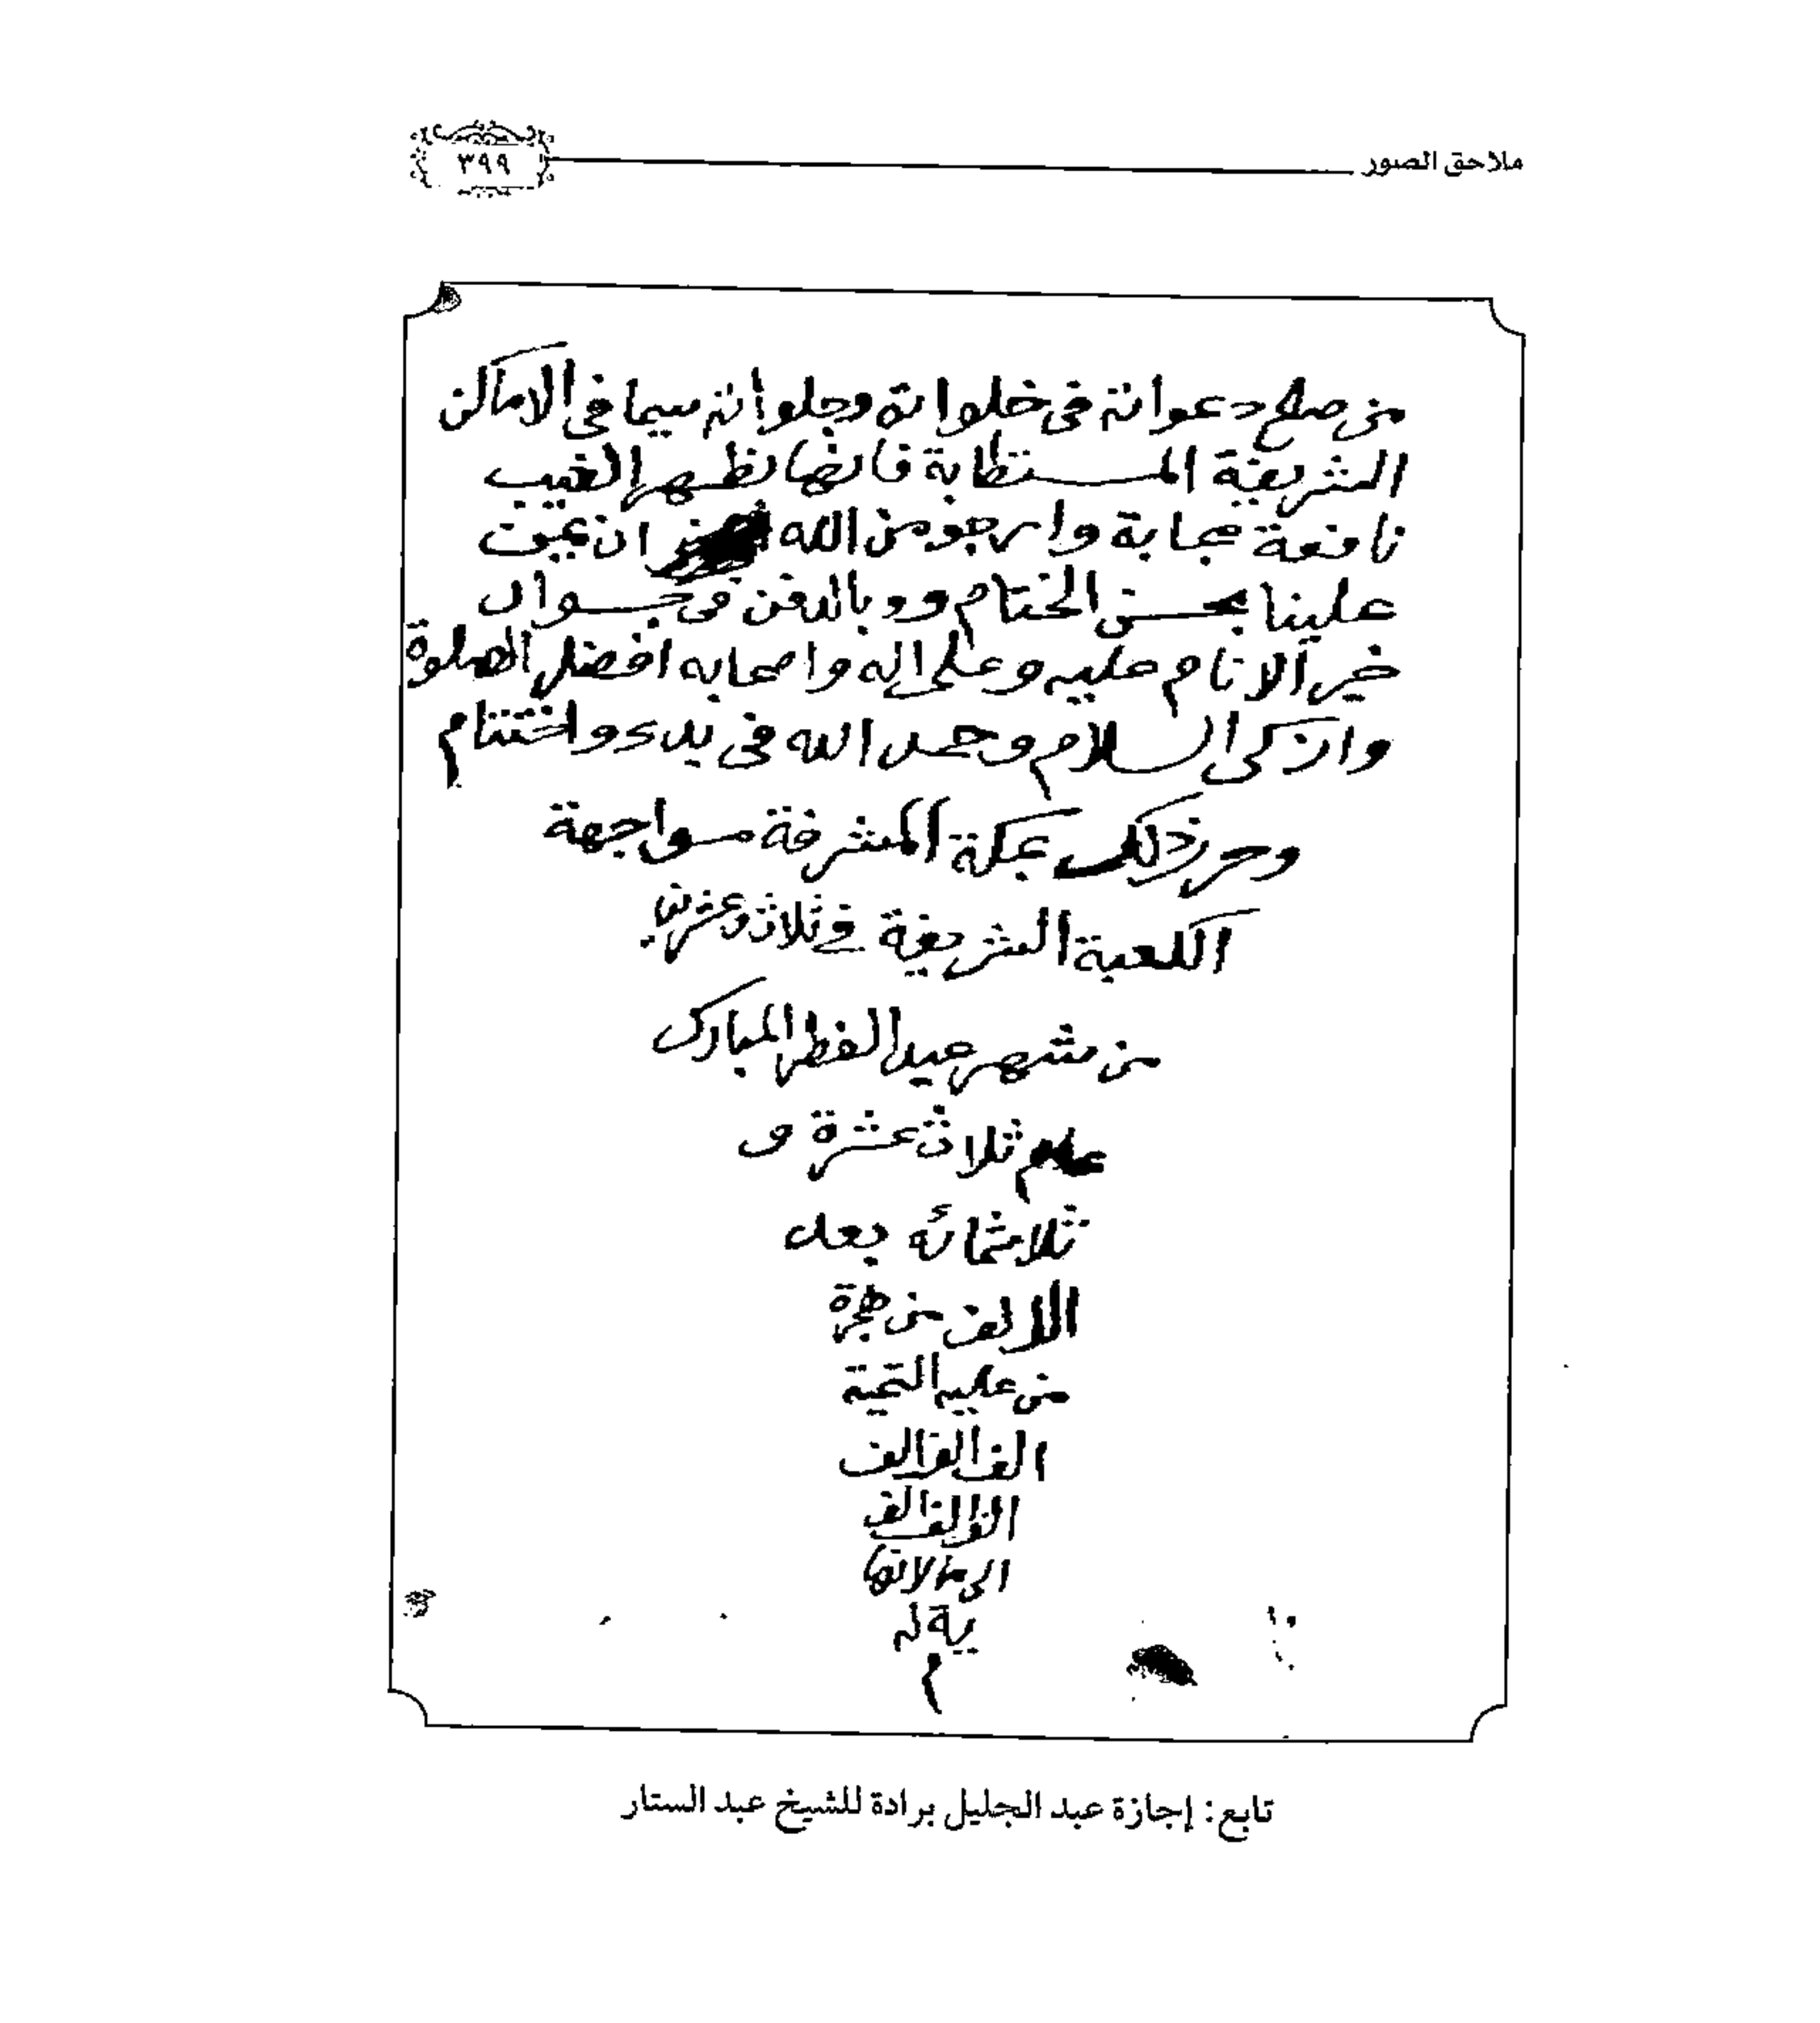 ملاحق الصور
٣٩٩
من صلاح دعواته فى خلواته وجلواته سيما فى الاماكن
الشريفة المستطابة فانها بظهر الغيب
نافعة مجابة وارجو من الله ان يمن
علينا بحسن الختام و وبالدفن فى جوار
خير الانام عليه وعلى اله واصحابه افضل الصلوة
وازكى السلام وحمد الله فى بدء واختتام
وحرر ذلك بمكة المشرفة مواجهة
الكعبة الشريفة فى ثلاث وعشرين
من شهر عيد الفطر المبارك
عام ثلاث عشرة و
ثلاثمائه بعد
الالف من هجرة
من عليه التحية
الف الف الف
الف الف الف
الى مالا نها
ية له
م
تابع: إجازة عبد الجليل برادة للشيخ عبد الستار